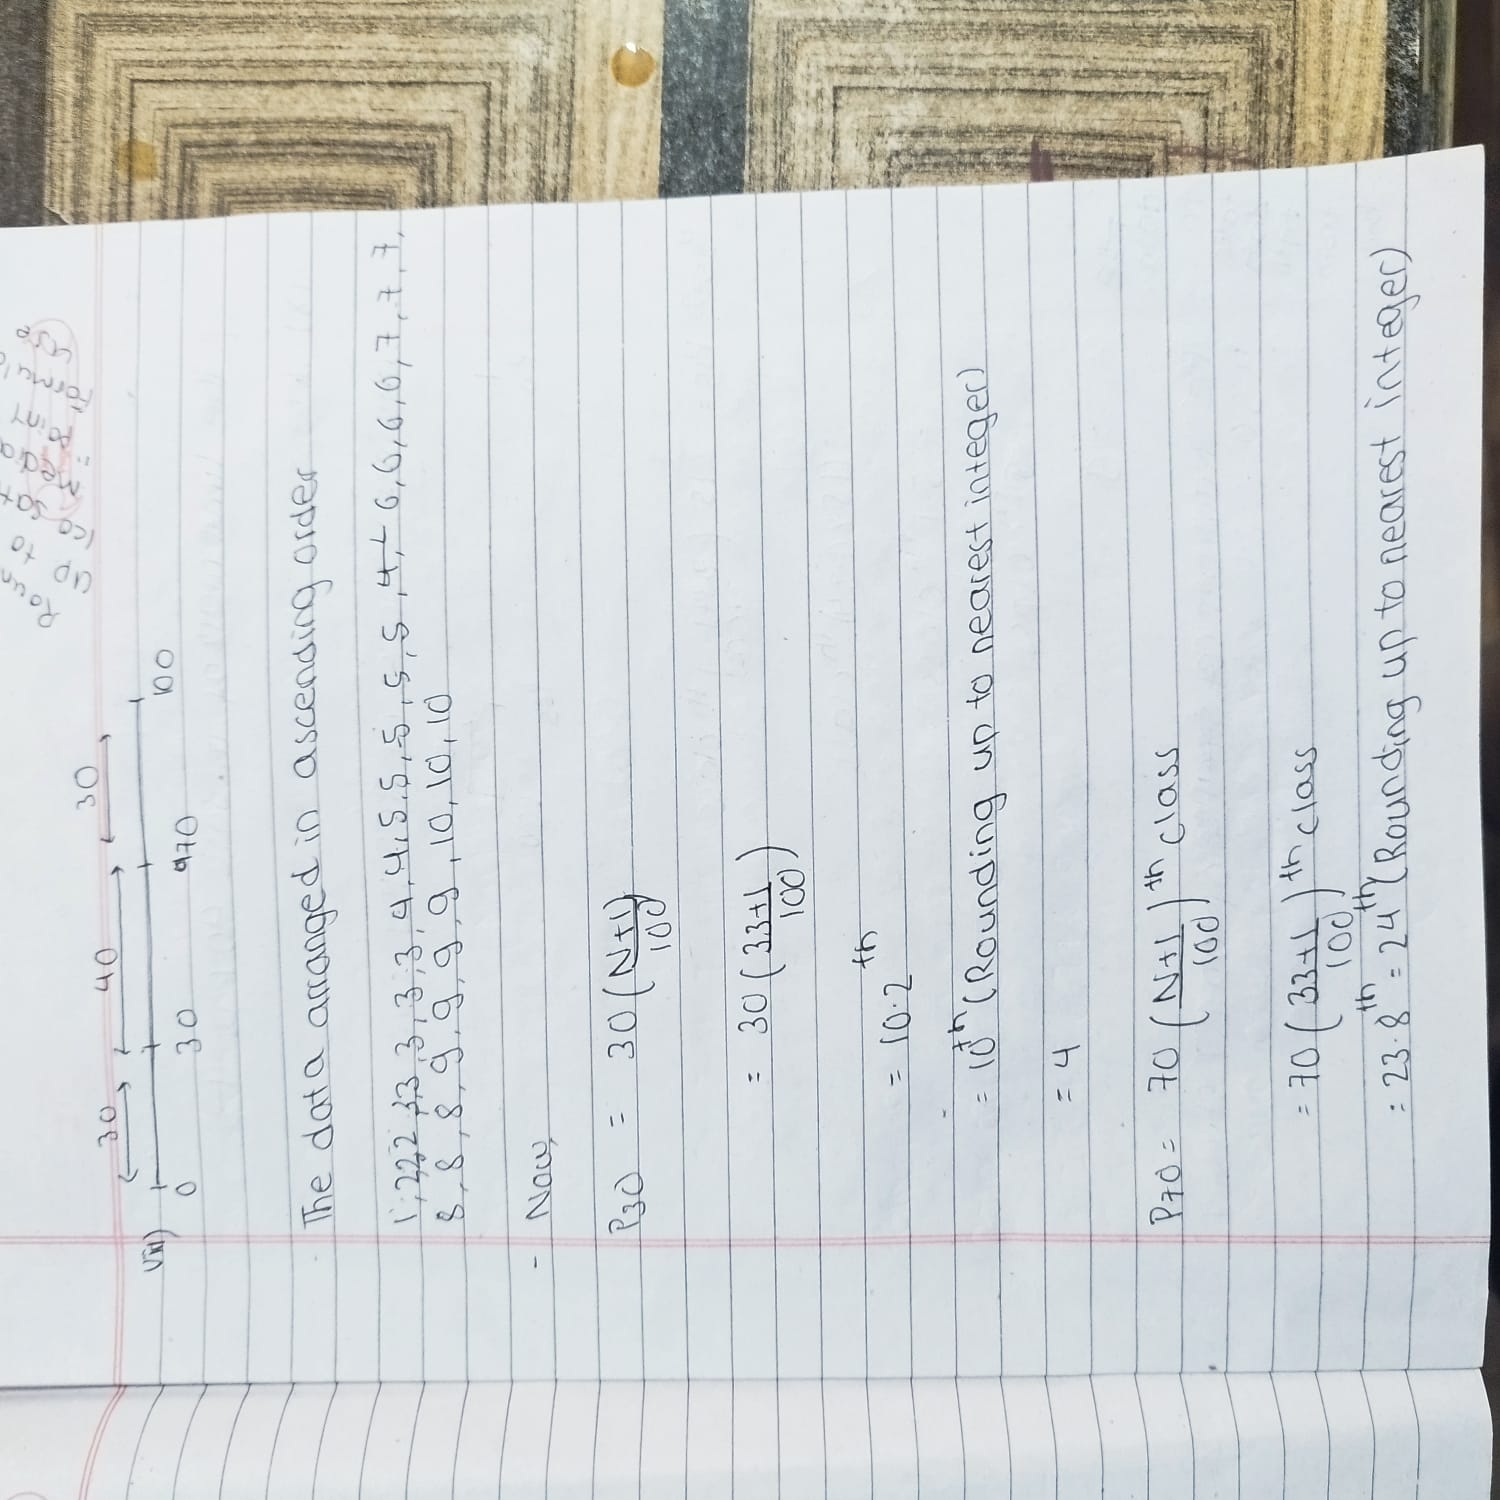 Roun
up to
ko sat
media
" point
Formula
use
30 40 30
viii)
0 30 70 100
The data arranged in ascending order
1, 2,2,2, 3,3, 3, 3, 3, 4, 4, 5, 5, 5, 5, 5, 6, 6, 6, 6, 7, 7, 7,
8, 8, 8, 9, 9, 9, 9, 10, 10, 10
- Now,
P30 = 30 (N+1/100)
= 30 (33+1/100)
= 10.2th
= 10th (Rounding up to nearest integer)
= 4
P70 = 70 (N+1/100)th class
= 70 (33+1/100)th class
= 23.8th = 24th (Rounding up to nearest integer)